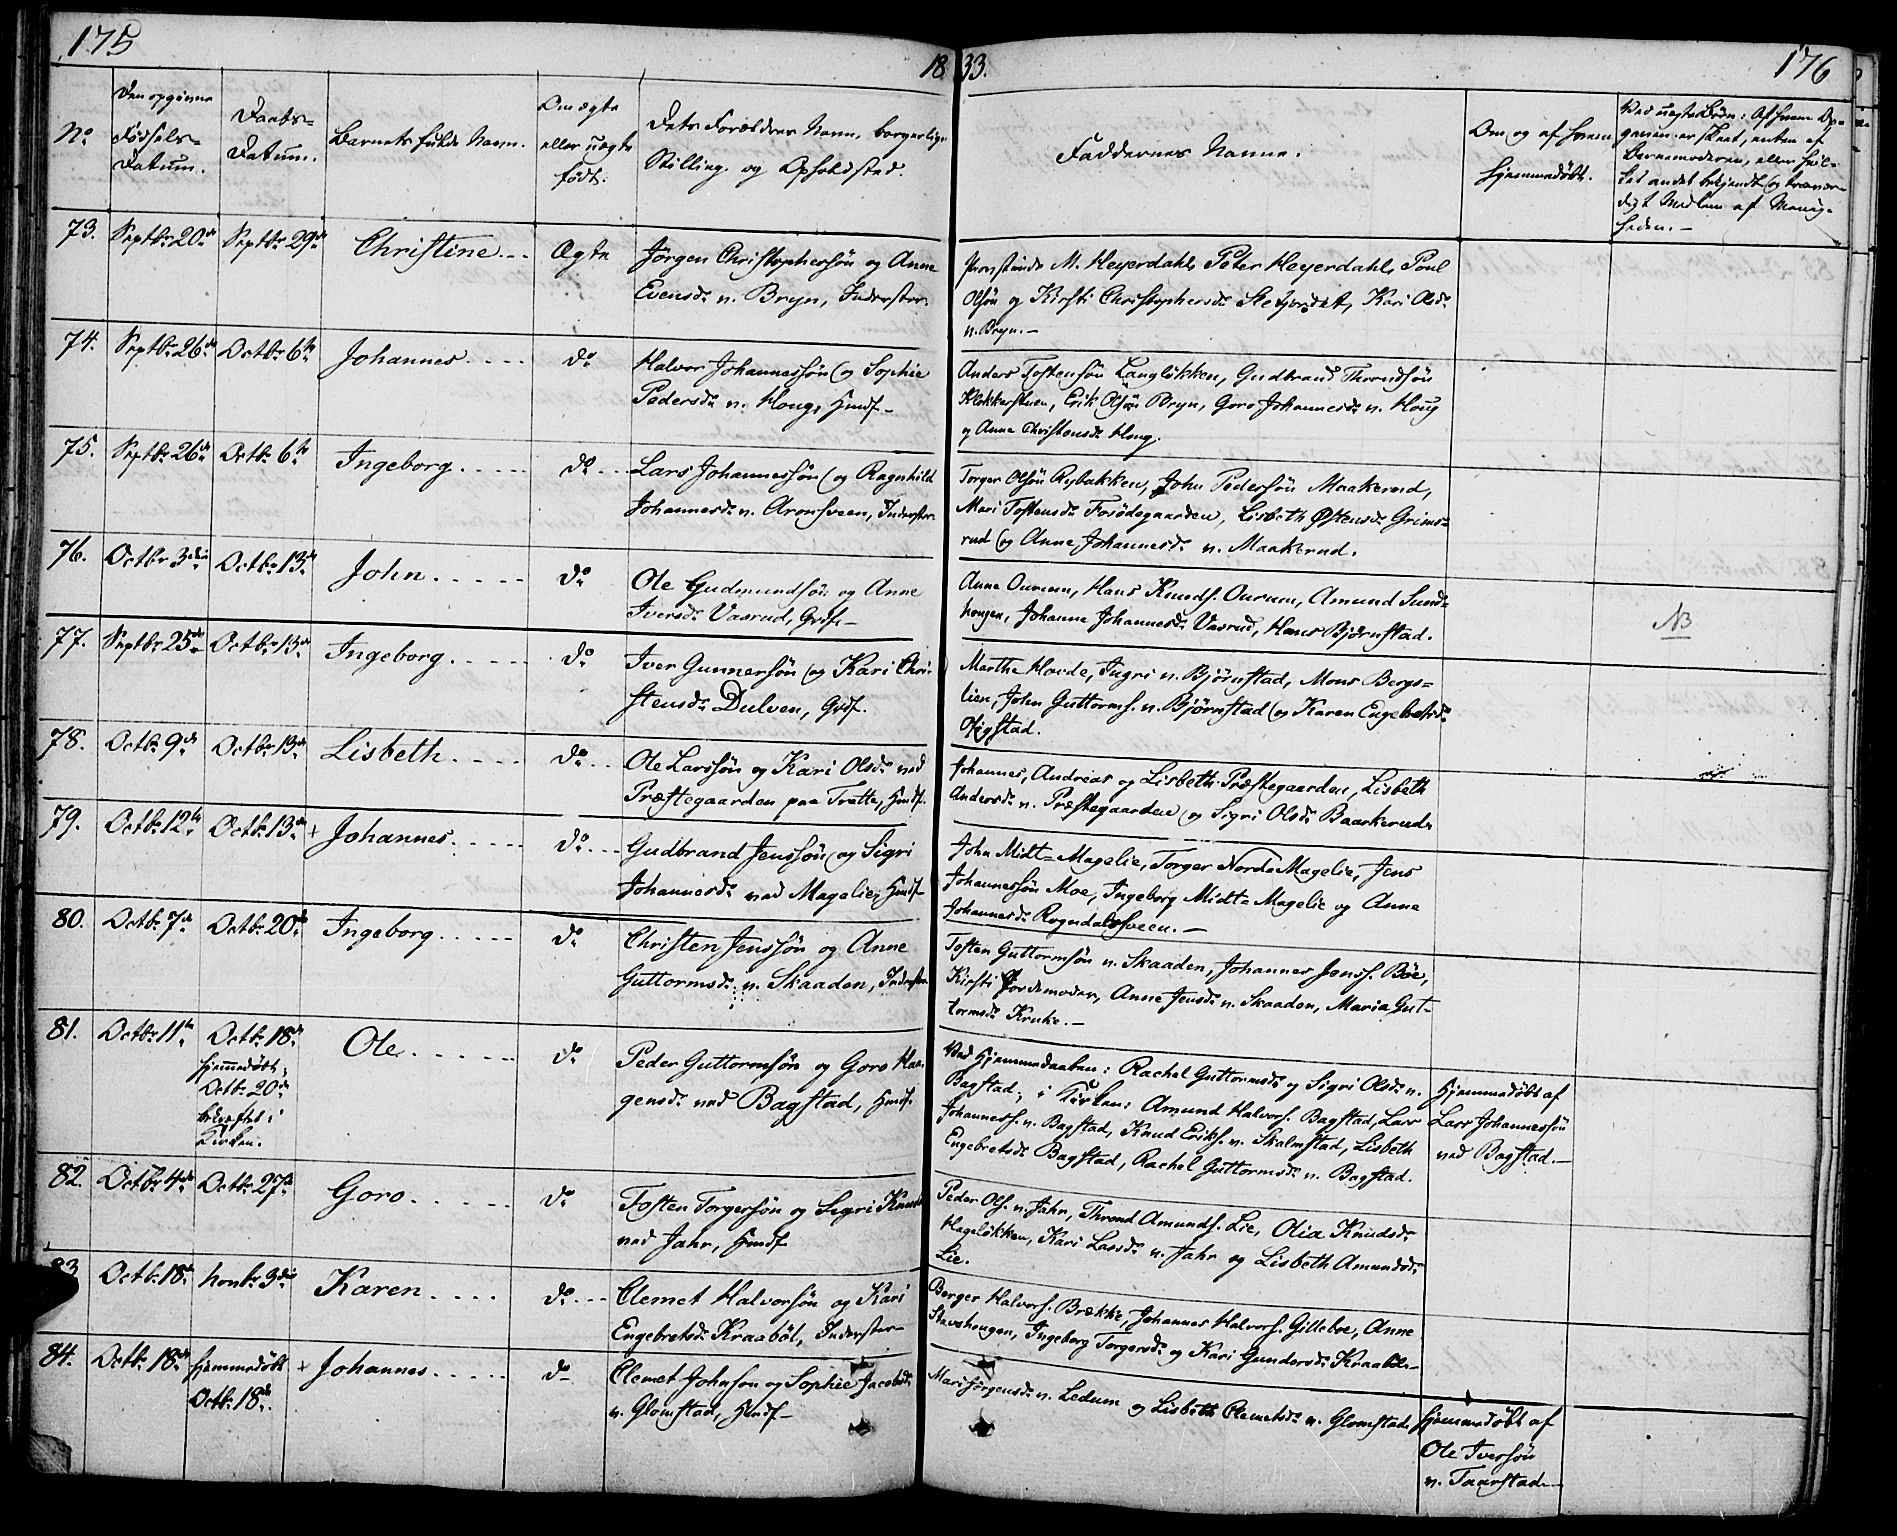 175
1833.
176
No
Den opgivne Fødsels-Datum.
Daabs-Datum.
Barnets fulde Navn.
Om ægte eller uægte født.
Dets Forældres Navn, borgerlige Stilling og Opholdsted.
Faddernes Navne.
Om og af hvem hjemmedøbt.
Ved uægte Børn: Af hvem Opgaven er skeet, enten af Barnemoderen, eller hvilket andet bekjendt og troværdigt Medlem af Menigheden.-
73. Septbr 20de Septbr 29de Christine... Ægte
Jørgen Christophersøn og Anne
Evensdr. v. Bryn, Inderster.
M. Heyerdahl, Peter Heyerdahl, Poul
Olsøn og Kirsti Christophersdr. Kari Olsdr.
v. Bryn.-
74. Septbr 26de Octbr 6te Johannes.... do
Halvor Johannessøn og Sophie
Pedersdr. v. Houg, Hmdf-
Anders Tostensøn Langløkken, Gudbrand Throndsøn
Klokkerstuen, Erik Olsøn Bryn, Goro Johannesdr. v. Houg
og Anne Christensdr. Houg.
75. Septbr 26de Octbr 6te Ingeborg..... do...
Lars Johannessøn og Ragnhild
Johannesdr. v. Aronsveen, Inderster
Torger Olsøn Rybakken, John Pedersøn Maakerud,
Mari Tostensdr. Fosødegaarden, Lisbeth Østensdr. Grims=
rud og Anne Johannesdr. v. Maakerud.
76. Octbr 3die Octbr 13de John..... do
Ole Gudmundsøn og Anne
Iversdr. Vasrud, Grdf-
Anne Ourum, Hans Knuds. Ourum, Amund Sund=
hougen, Johanne Johannesdr. Vasrud, Hans Bjørnstad.
NB
77. Septbr 25de Octbr 13de Ingeborg..... do
Iver Gunnersøn og Kari Chri-
stensdr. Dulven, Grdf.
Marthe Hovde, Ingri v. Bjørnstad, Mons Bergs=
lien, John Guttorms. v. Bjørnstad og Karen Engebretsdr.
78. Octbr 9de Octbr 13de Lisbeth..... do...
Ole Larssøn og Kari Olsdr. ved
Præstegaarden paa Trette, Hmdf.
Johannes, Andreas og Lisbeth Præstegaarden, Lisbeth
Andersdr. v. Præstegaarden og Sigri Olsdr. Baarkerud.
79. Octbr 12te Octbr 13de + Johannes..... do...
Gudbrand Jenssøn og Sigri
Johannesdr. ved Magelie, Hmdf-
John Midt=Magelie, Torger Nordre Magelie, Jens
Johannessøn Moe, Ingeborg Midt=Magelie og Anne
Johannesdr. Rogndalssveen.-
80. Octbr 7de Octbr 20de Ingeborg..... do
Christen Jenssøn og Anne
Guttormsdr. v. Skaaden, Inderster
Tosten Guttormsøn v. Skaaden, Johannes Jenss. Böe,
Kirsti Jordemoder, Anne Jensdr. v. Skaaden, Maria Gut-
tormsdr. Kruke.-
81. Octbr 11te Octbr 18de
hjemmedøbt,
Octbr 20de
bekræftet i
Kirken.
Ole...... do
Peder Guttormsøn og Goro Haa-
gensdr. ved Bagstad, Hmdf.
Ved Hjemmedaaben: Rachel Guttormsdr. og Sigri Olsdr. v.
Bagstad; i Kirken: Amund Halvors. Bagstad, Lars
Johanness. v. Bagstad, Knud Eriks. v. Skalmstad, Lisbeth
Engebretsdr. Bagstad, Rachel Guttormsdr. v. Bagstad.
Hjemmedøbt af
Lars Johannessøn
ved Bagstad.-
82. Octbr 4de Octbr 27de Goro..... do
Tosten Torgersøn og Sigri Knuds
ved Jahr, Hmdf
Peder Ols. v. Jahr, Thrond Amunds. Lie, Olia Knudsdr.
Hageløkken, Kari Larsdr. v. Jahr og Lisbeth Amundsdr.
Lie.
83 Octbr 18de Novbr 3die Karen.... do...
Clemet Halvorsøn og Kari
Engebretsdr. Kraabøl, Inderster-
Berger Halvors. Brække, Johannes Halvors. Gilleboe, Anne
Stavshougen, Ingeborg Torgersdr. og Kari Gundersdr. Kraabøl-
84. Octbr 18de hjemmedøbt
Octbr 18de
+ Johannes..... do
Clemet Johnsøn og Sophie Jacobsdr.
v. Glomstad, Hmdf-
Mari Jörgensdr. v. Ledum og Lisbeth Clemetsdr. v. Glomstad.
Hjemmedøbt af
Ole Iversøn
v. Taarstad-